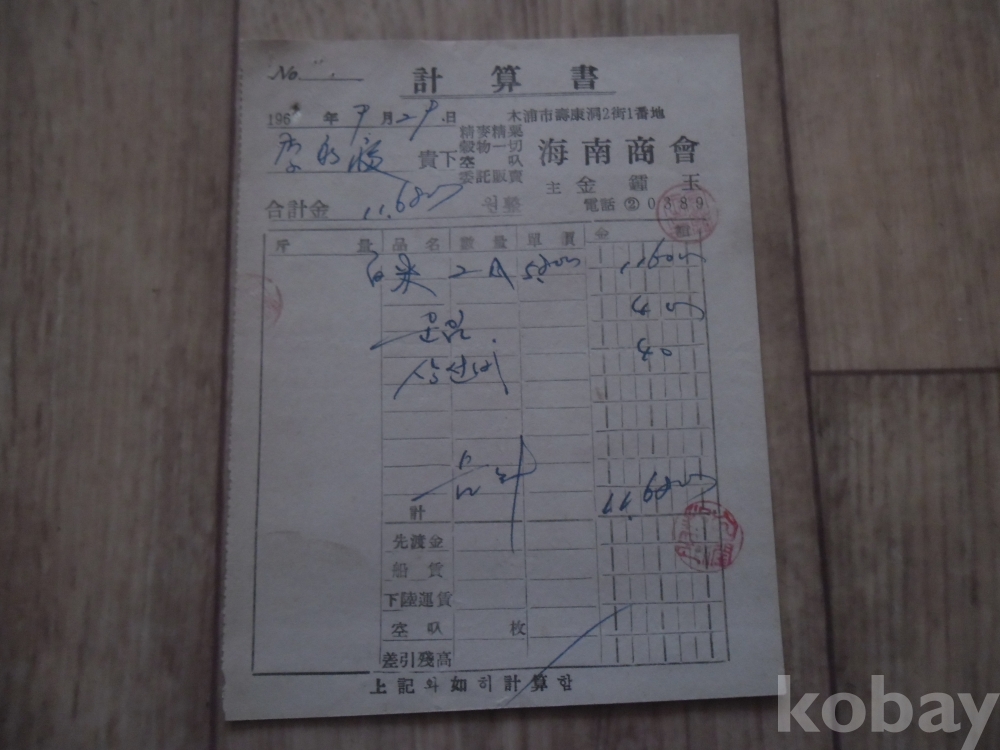 No
計算書
196 年 9月 29日
木浦市壽康洞2街1番地
貴下
精麥精粟
穀物一切
空叺
委託販賣
海南商會
主 金鍾玉
合計金 11,680
원整
電話 ② 0389
斤量 品名 數量 單價 金額
白米 2叺 5,800 11,600
운임 40
상선비 40
계
計 11,680
先渡金
船賃
下陸運賃
空叺 枚
差引殘高
上記와如히計算함
kobay